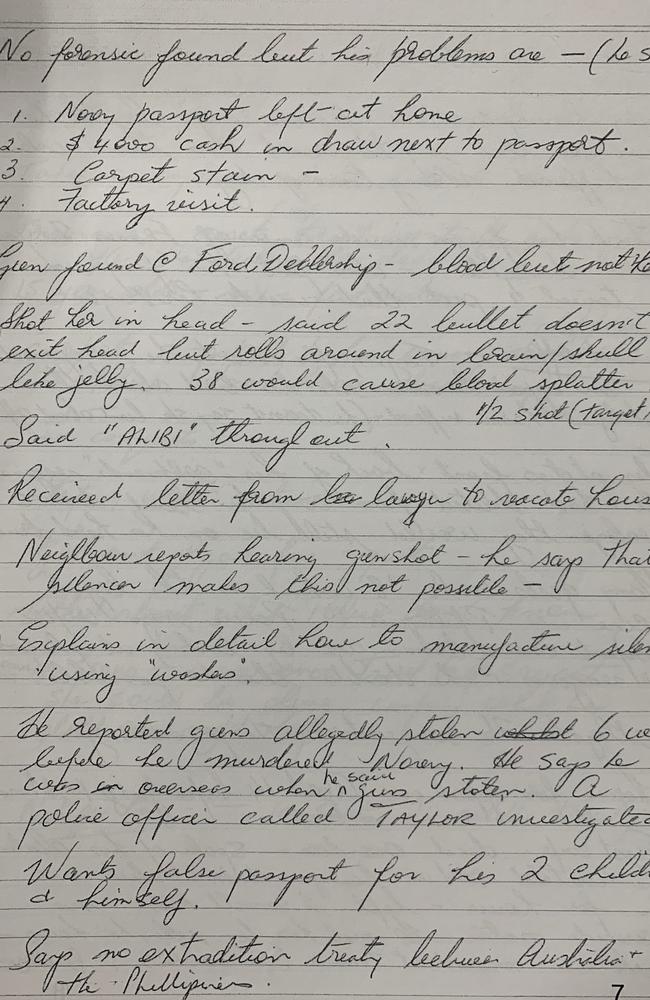 No forensic found but his problems are — (he s
1. Novy passport left at home
2. $4000 cash in draw next to passport.
3. Carpet stain —
4. Factory visit.
Gun found @ Ford Deblership - blood but not
Shot her in head - said 22 bullet doesn't
exit head but rolls around in brain/skull
like jelly. 38 would cause blood splatter
1/2 shot (target
Said "ALIBI" throughout.
Received letter from lawyer to vacate hous
Neighbour reports hearing gunshot - he says that
silencer makes this not possible -
Explains in detail how to manufacture silen
using "washers".
He reported guns allegedly stolen whilst 6 w
before he murdered Novy. He says he
was in overseas when he said guns stolen. A
police officer called TAYLOR investigated
Wants false passport for his 2 child
& himself.
Says no extradition treaty between Australia +
the Phillipines.
7